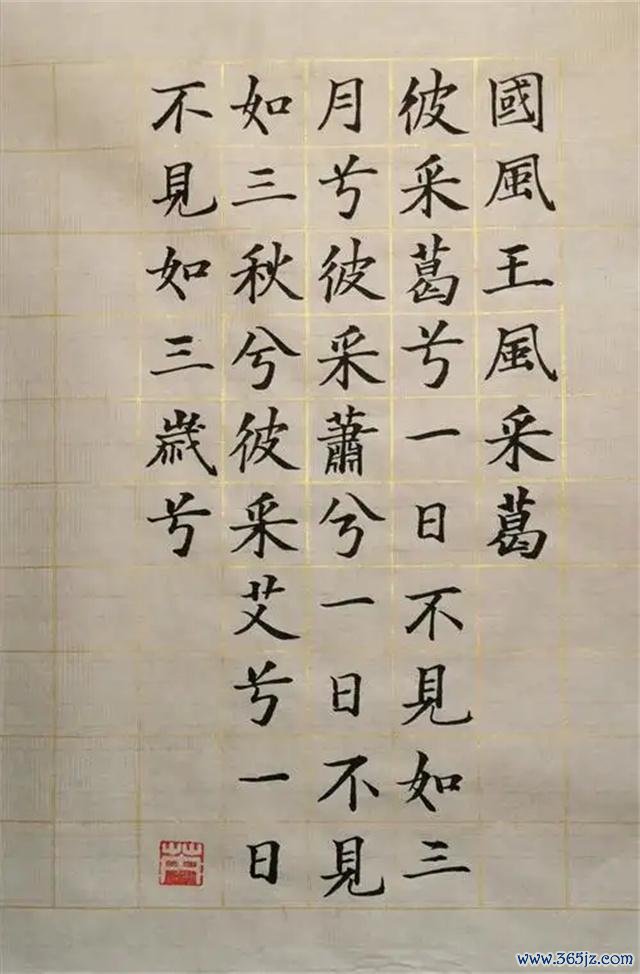 國風王風采葛
彼采葛兮一日不見如三
月兮彼采蕭兮一日不見
如三秋兮彼采艾兮一日
不見如三歲兮
www.365jz.com